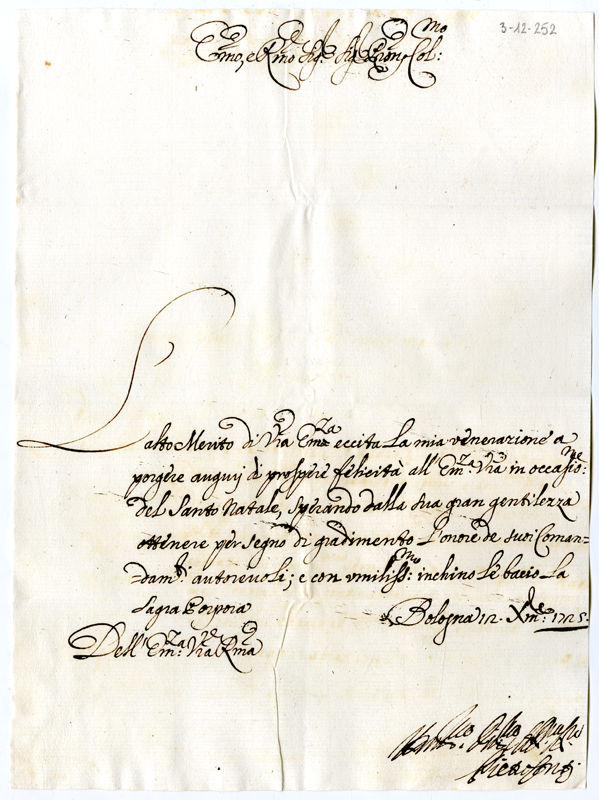 3-12-252
Emo, e Rmo Sig.e Sig.e Pron Col:mo
L'alto Merito di Vra Emza eccita La mia venerazione a
porgere augurij di prospere felicità all'Em:za Vra in occasio:ne
del Santo Natale, sperando dalla sua gran gentilezza
ottenere per segno di gradimento L'onore de suoi Coman=
=dam:ti autorevoli; e con vmiliss:mo inchino Le bacio La
Sagra Porpora
Bologna 12. Xm:bre 1725.
Dell'Em:za Vra Rma